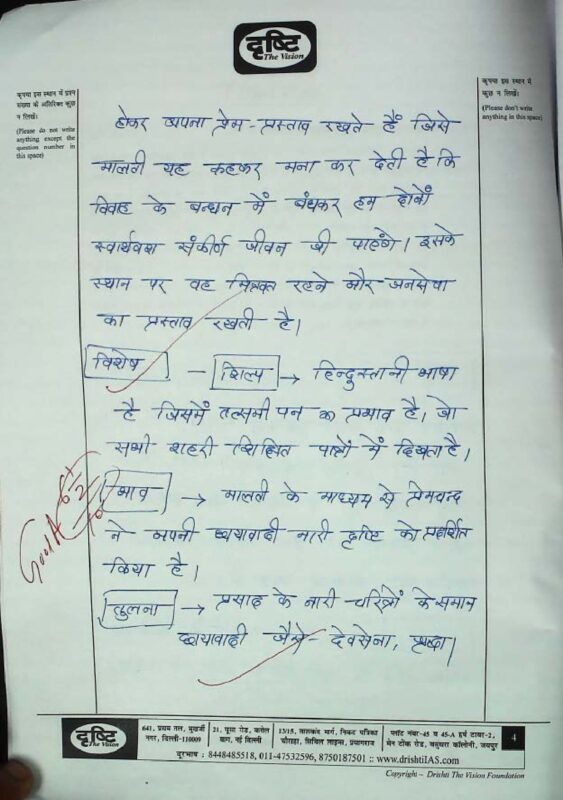 दृष्टि
The Vision
कृपया इस स्थान में प्रश्न
संख्या के अतिरिक्त कुछ
न लिखें।
(Please do not write
anything except the
question number in
this space)
कृपया इस स्थान में
कुछ न लिखें।
(Please don't write
anything in this space)
होकर अपना प्रेम-प्रस्ताव रखते हैं जिसे
मालती यह कहकर मना कर देती है कि
विवाह के बन्धन में बंधकर हम दोनों
स्वार्थवश संकीर्ण जीवन जी पाएंगे। इसके
स्थान पर वह मित्रवत रहने और जनसेवा
का प्रस्ताव रखती है।
विशेष - शिल्प → हिन्दुस्तानी भाषा
है जिसमें तत्समीपन का प्रभाव है। जो
सभी शहरी शिक्षित पात्रों में दिखता है।
भाव → मालती के माध्यम से प्रेमचन्द
ने अपनी छायावादी नारी दृष्टि को प्रदर्शित
किया है।
तुलना → प्रसाद के नारी चरित्रों के समान
छायावादी जैसे- देवसेना, श्रद्धा।
Good
दृष्टि
The Vision
641, प्रथम तल, मुखर्जी
नगर, दिल्ली-110009
21, पूसा रोड, करोल
बाग, नई दिल्ली
13/15, ताशकंद मार्ग, निकट पत्रिका
चौराहा, सिविल लाइन्स, प्रयागराज
प्लॉट नंबर-45 व 45-A हर्ष टावर-2,
मेन टोंक रोड, वसुंधरा कॉलोनी, जयपुर
4
दूरभाष : 8448485518, 011-47532596, 8750187501 :: www.drishtiIAS.com
Copyright – Drishti The Vision Foundation